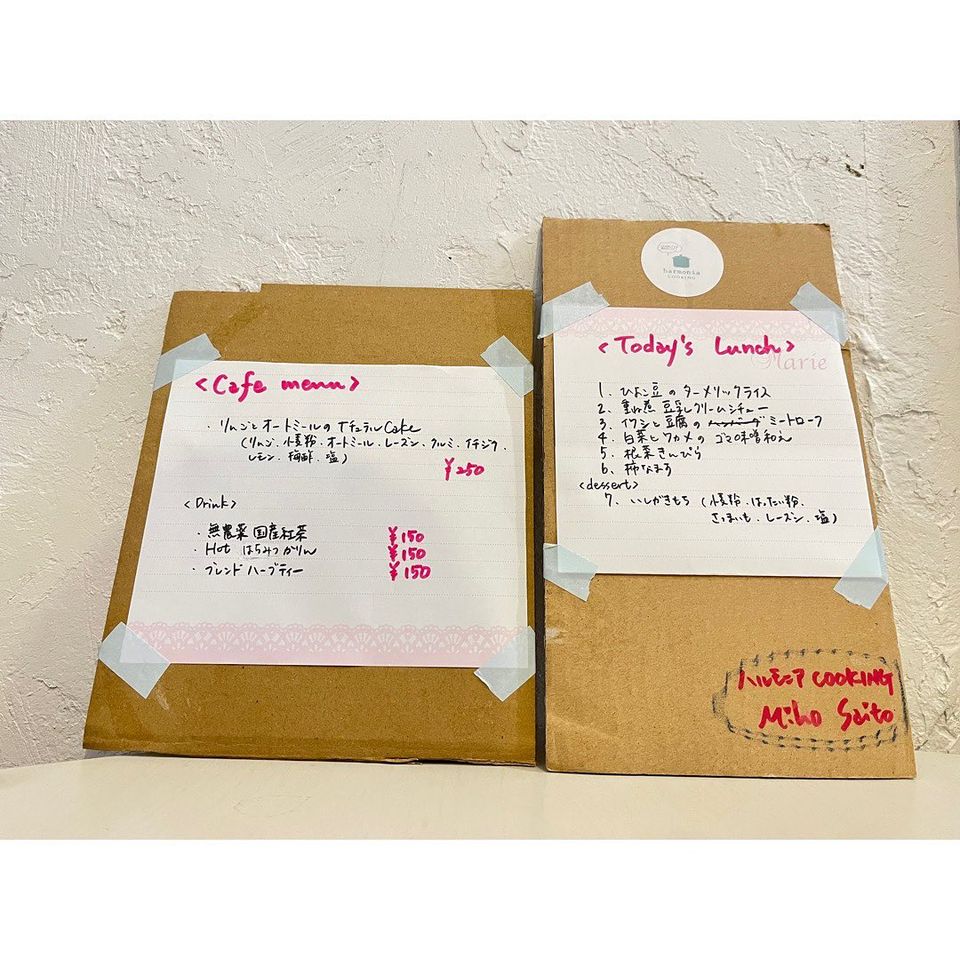 <Cafe menu>
・リンゴとオートミールのナチュラルCake
(リンゴ、小麦粉、オートミール、レーズン、クルミ、イチジク、
レモン、梅酢、塩)
¥250
<Drink>
・無農薬国産紅茶 ¥150
・Hot はちみつかりん ¥150
・ブレンドハーブティー ¥150
harmonia
COOKING
<Today's Lunch>
Marie
1. ひよこ豆のターメリックライス
2. 重ね煮豆乳クリームシチュー
3. イワシと豆腐のハンバーグミートローフ
4. 白菜とワカメのゴマ味噌和え
5. 根菜きんぴら
6. 柿なます
<dessert>
7. いしがきもち (小麦粉、はったい粉、
さつまいも、レーズン、塩)
ハルモニア COOKING
Miho Saito